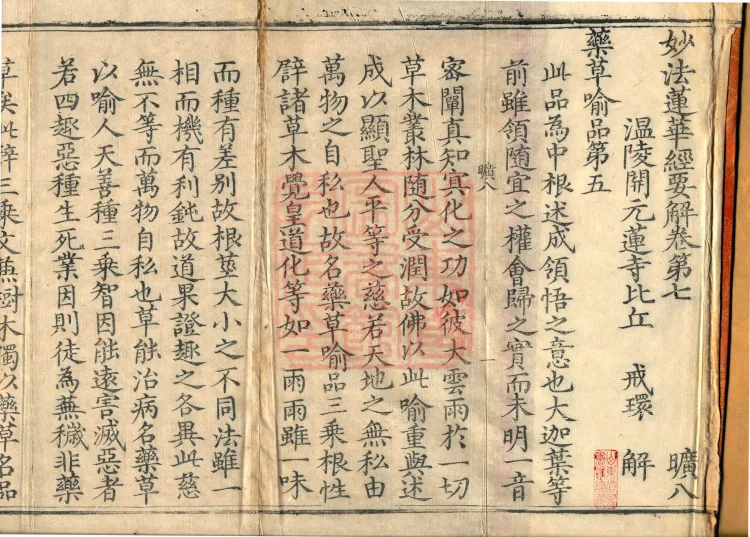 妙法蓮華經要解卷第七　曠八
溫陵開元蓮寺比丘　戒環　解
藥草喻品第五
此品為中根述成領悟之意也大迦葉等
前雖領隨宜之權會歸之實而未明一音
曠八　一
密闡真知冥化之功如彼大雲雨於一切
草木叢林隨分受潤故佛以此喻重與述
成以顯聖人平等之慈若天地之無私由
萬物之自私也故名藥草喻品三乘根性
譬諸草木覺皇道化等如一雨雨雖一味
而種有差別故根莖大小之不同法雖一
相而機有利鈍故道果證趣之各異此慈
無不等而萬物自私也草能治病名藥草
以喻人天善種三乘智因能遠害滅惡者
若四趣惡種生死業因則徒為蕪穢非藥
草矣此辭三乘文兼樹木獨以藥草名品